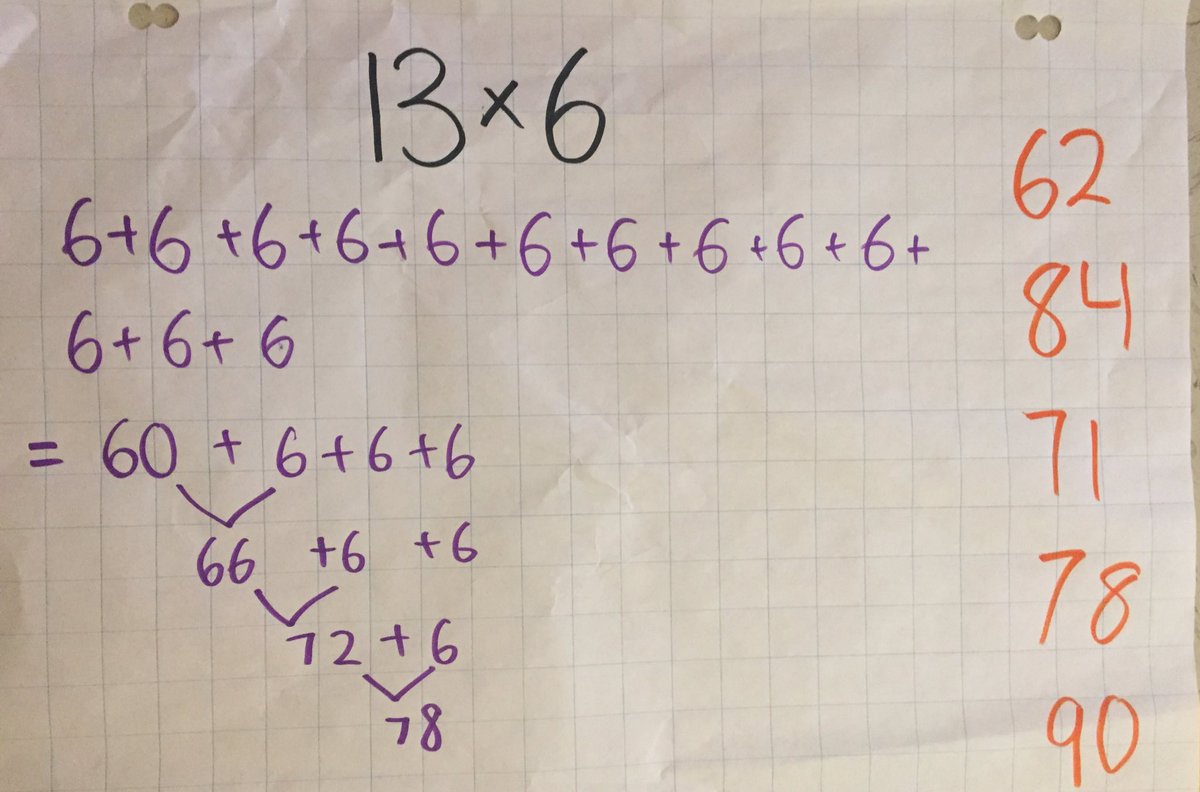 13×6
6+6+6+6+6+6+6+6+6+6+
6+6+6
= 60 + 6+6+6
66 +6 +6
72 + 6
78
62
84
71
78
90